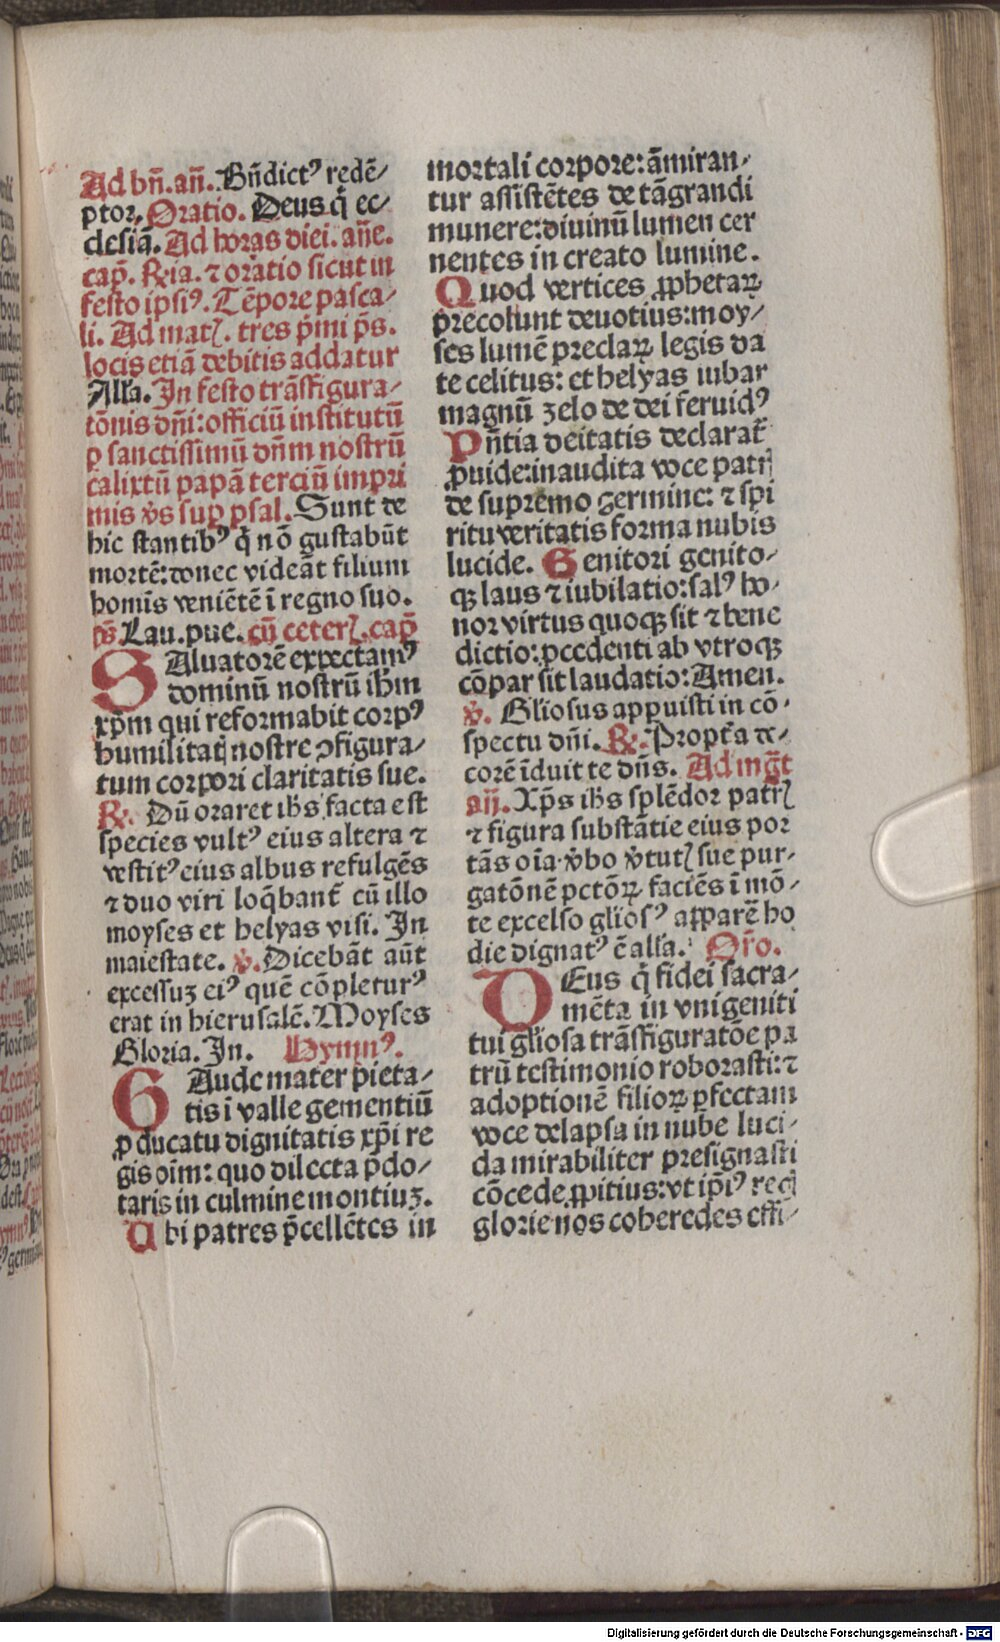 Ad bn̄. an̄. Bn̄dictꝰ redē/
ptor. Oratio. Deus q̄ ec/
clesiā. Ad horas diei. an̄e.
cap̄. ℞ia. ⁊ oratio sicut in
festo ipsiꝰ. Tēpore pasca/
li. Ad matꝭ. tres p̄mi pˢ.
locis etiā debitis addatur
Alla. In festo trāsfigura/
tōnis dn̄i: officiū institutū
ꝑ sanctissimū dn̄m nostrū
calixtū papā terciū impri
mis v̄s sup psal. Sunt de
hic stantibꝰ q̄ nō gustabūt
mortē: donec videāt filium
homīs veniētē ī regno suo.
pˢ. Lau. pue. cū ceterꝭ. cap̄
SAluatorē expectamꝰ
dominū nostrū ihm̄
xp̄m qui reformabit corpꝰ
humilitatꝭ nostre ꝯfigura/
tum corpori claritatis sue.
℞. Dū oraret ihs̄ facta est
species vultꝰ eius altera ⁊
vestitꝰ eius albus refulgēs
⁊ duo viri loq̄bant̄ cū illo
moyses et helyas visi. In
maiestate. ℣. Dicebāt aūt
excessuꝫ eiꝰ quē cōpleturꝰ
erat in hierusalē. Moyses
Gloria. In. Hymnꝰ.
GAude mater pieta/
tis ī valle gementiū
ꝓ ducatu dignitatis xp̄i re
gis oīm: quo dilecta p̄do/
taris in culmine montiuꝫ.
Ubi patres p̄cellētes in
mortali corpore: āmiran/
tur assistētes de tā grandi
munere: diuinū lumen cer
nentes in creato lumine.
Quod vertices ꝓphetaꝝ
precolunt deuotius: moy/
ses lumē preclaꝝ legis da
te celitus: et helyas iubar
magnū zelo de dei feruidꝰ
Pn̄tia deitatis declarat̄
ꝓuide: inaudita voce patrꝭ
de supremo germine: ⁊ spi
ritu veritatis forma nubis
lucide. Genitori genito-
qꝫ laus ⁊ iubilatio: salꝰ ho-
nor virtus quoqꝫ sit ⁊ bene
dictio: ꝓcedenti ab vtroqꝫ
cōpar sit laudatio: Amen.
℣. Gliosus appuisti in cō-
spectu dn̄i. ℞. Propt̄a de-
corē īduit te dn̄s. Ad mgt̄
an̄. Xp̄s ihs̄ splēdor patrꝭ
⁊ figura substātie eius por
tās oīa v̄bo v̄tutꝭ sue pur-
gatōnē pctōꝝ faciēs ī mō-
te excelso gliosꝰ apparē ho
die dignatꝰ ē alla. Or̄o.
DEus q̄ fidei sacra/
mēta in vnigeniti
tui gliosa trāsfiguratōe pa
trū testimonio roborasti: ⁊
adoptionē filioꝝ ꝑfectam
voce delapsa in nube luci/
da mirabiliter presignasti
cōcede ꝓpitius: vt ip̄iꝰ regꝭ
glorie nos coheredes effi/
Digitalisierung gefördert durch die Deutsche Forschungsgemeinschaft - DFG